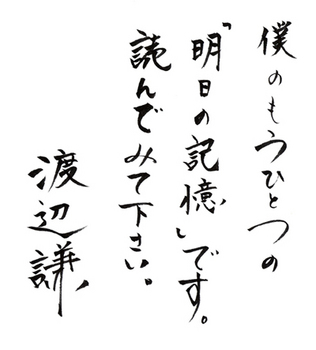 僕のもうひとつの
「明日の記憶」です。
読んでみて下さい。
渡辺謙